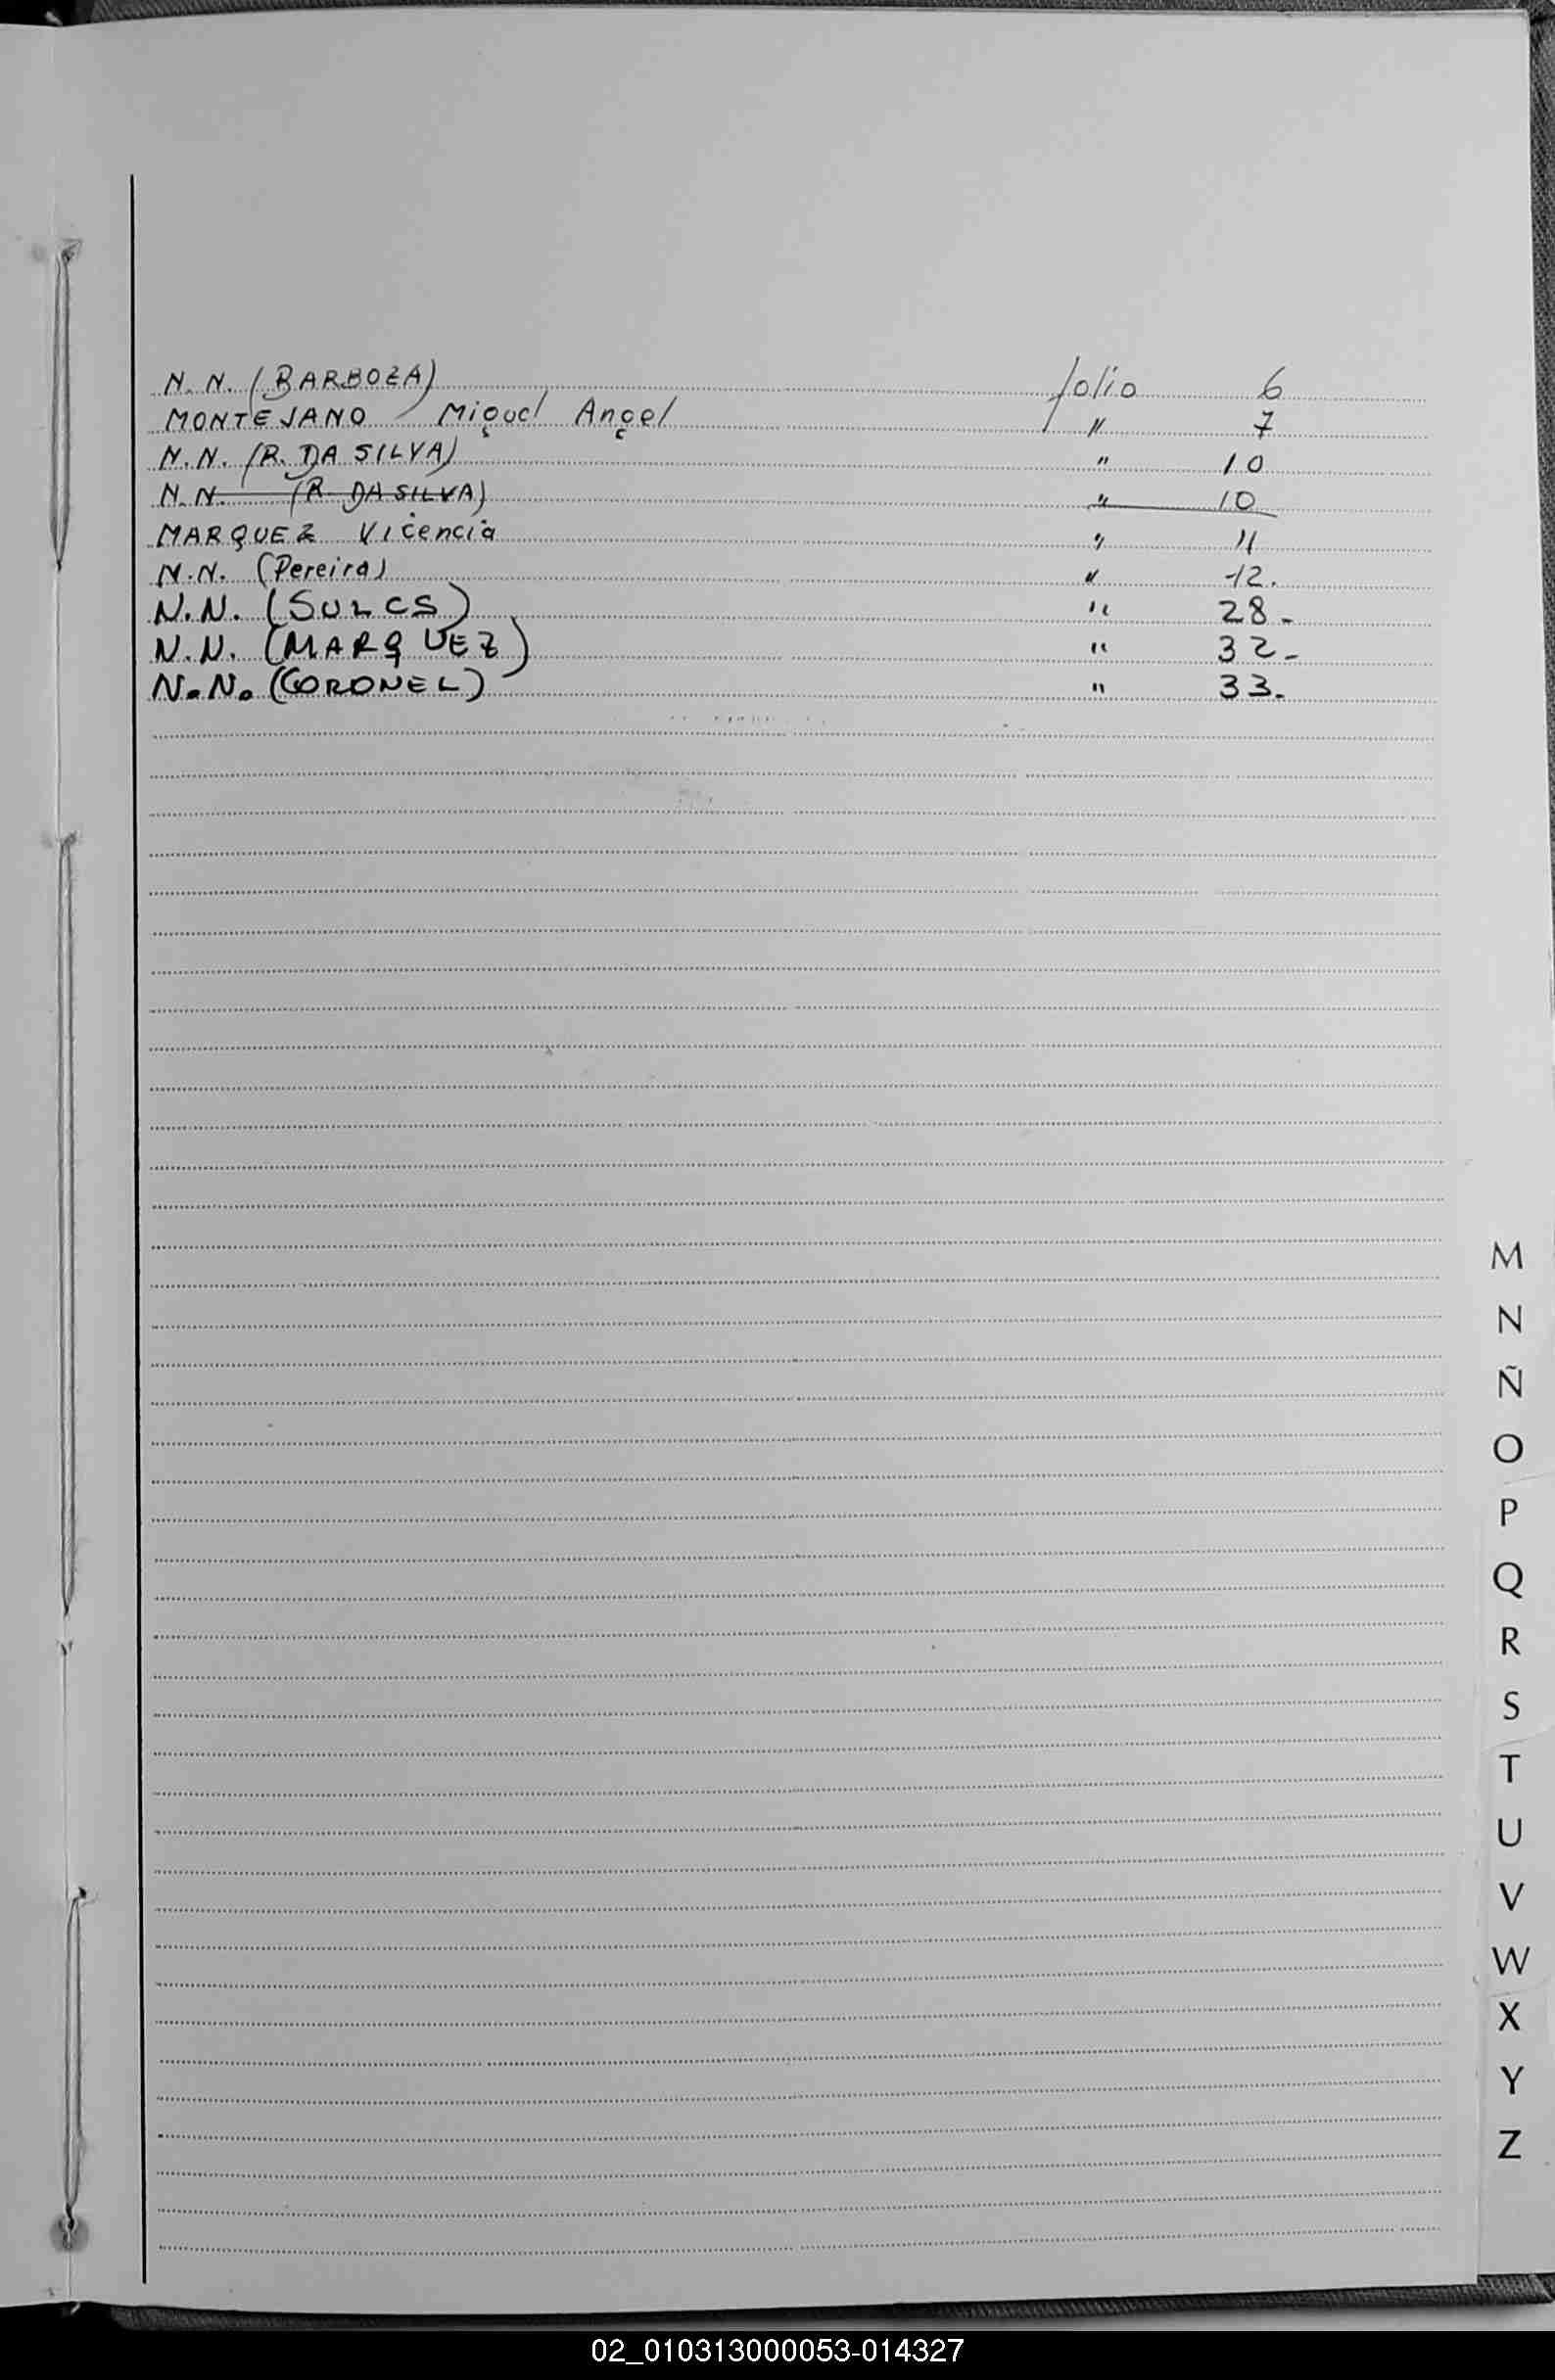 N.N. (BARBOZA) folio 6
MONTEJANO Miguel Angel " 7
N.N. (R. DA SILVA) " 10
N.N. (R. DA SILVA) " 10
MARQUEZ Vicencia " 11
N.N. (Pereira) " 12.
N.N. (SULCS) " 28-
N.N. (MARQUEZ) " 32-
N.N. (CORONEL) " 33.
M
N
Ñ
O
P
Q
R
S
T
U
V
W
X
Y
Z
02_010313000053-014327